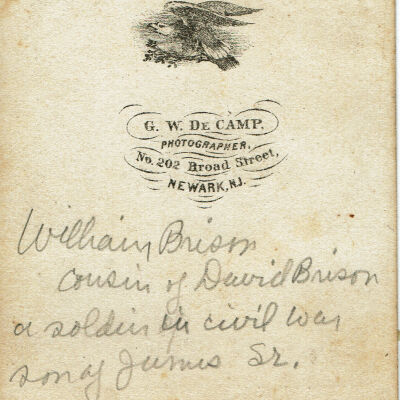 G. W. DE CAMP,
PHOTOGRAPHER,
No. 202 Broad Street,
NEWARK, N.J.
William Brison
cousin of David Brison
a soldier in civil war
son of James Sr.